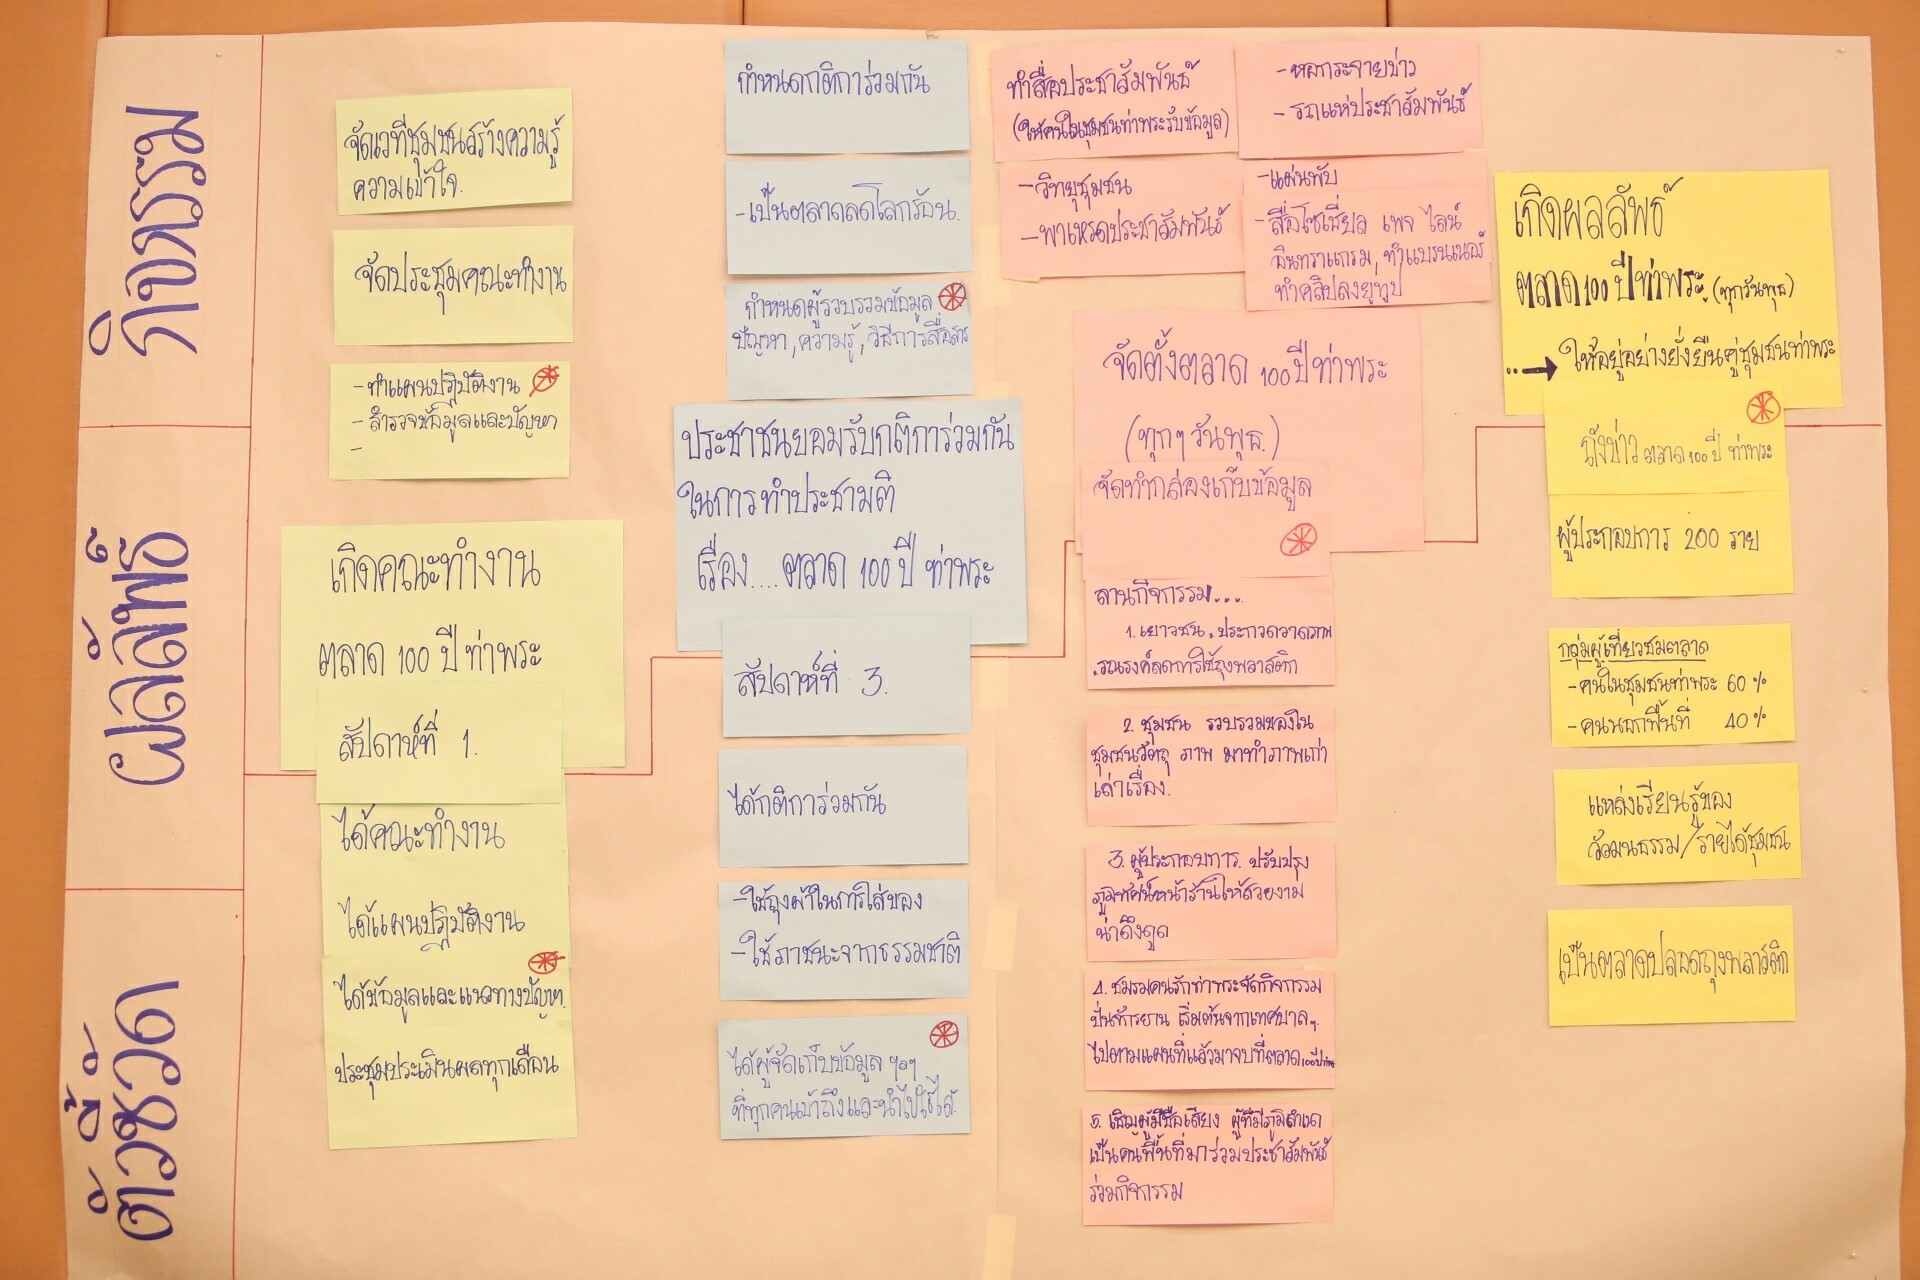 กิจกรรม
ผลลัพธ์
ตัวชี้วัด
จัดเวทีชุมชนสร้างความรู้
ความเข้าใจ.
จัดประชุมคณะทำงาน
- ทำแผนปฏิบัติงาน
- สำรวจข้อมูลและปัญหา
-
เกิดคณะทำงาน
ตลาด 100 ปี ท่าพระ
สัปดาห์ที่ 1.
ได้คณะทำงาน
ได้แผนปฏิบัติงาน
ได้ข้อมูลและแนวทางปัญหา.
ประชุมประเมินผลทุกเดือน
กำหนดกติการ่วมกัน
- เป็นตลาดลดโลกร้อน.
กำหนดผู้รวบรวมข้อมูล
ปัญหา, ความรู้, วิธีการสื่อสาร
ประชาชนยอมรับกติการ่วมกัน
ในการทำประชามติ
เรื่อง.... ตลาด 100 ปี ท่าพระ
สัปดาห์ที่ 3.
ได้กติการ่วมกัน
- ใช้ถุงผ้าในการใส่ของ
- ใช้ภาชนะจากธรรมชาติ
ได้ผู้จัดเก็บข้อมูล ฯลฯ
ที่ทุกคนเข้าถึงและนำไปใช้ได้.
ทำสื่อประชาสัมพันธ์
(ให้คนในชุมชนท่าพระรับข้อมูล)
- วิทยุชุมชน
- พาเหรดประชาสัมพันธ์
- หอกระจายข่าว
- รถแห่ประชาสัมพันธ์
- แผ่นพับ
- สื่อโซเชี่ยล เพจ ไลน์
อินทราแกรม, ทำแบรนเนอร์
ทำคลิปลงยูทูป
จัดตั้งตลาด 100 ปี ท่าพระ
(ทุกๆ วันพุธ.)
จัดทำกล่องเก็บข้อมูล
ลานกิจกรรม...
1. เยาวชน. ประกวดวาดภาพ
. รณรงค์ลดการใช้ถุงพลาสติก
2. ชุมชน รวบรวมของใน
ชุมชนวัตถุ ภาพ มาทำภาพเก่า
เล่าเรื่อง.
3. ผู้ประกอบการ. ปรับปรุง
ภูมิทัศน์หน้าร้านให้สวยงาม
น่าดึงดูด
4. ชมรมคนรักท่าพระจัดกิจกรรม
ปั่นจักรยาน เริ่มต้นจากเทศบาลฯ.
ไปตามแผนที่แล้วมาจบที่ตลาด 100 ปี ท่าพระ
5. เชิญผู้มีชื่อเสียง ผู้ที่มีภูมิลำเนา
เป็นคนพื้นที่มาร่วมประชาสัมพันธ์
ร่วมกิจกรรม
เกิดผลลัพธ์
ตลาด 100 ปี ท่าพระ (ทุกวันพุธ)
...→ ให้อยู่อย่างยั่งยืนคู่ชุมชนท่าพระ
ถังข่าว ตลาด 100 ปี ท่าพระ
ผู้ประกอบการ 200 ราย
กลุ่มผู้เที่ยวชมตลาด
- คนในชุมชนท่าพระ 60 %
- คนนอกพื้นที่ 40 %
แหล่งเรียนรู้ของ
วัฒนธรรม/รายได้ชุมชน
เป็นตลาดปลอดถุงพลาสติก